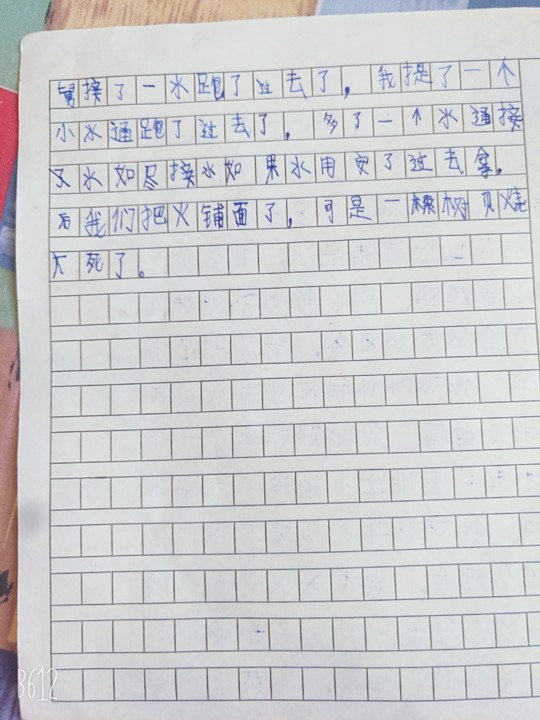 舅接了一水跑了过去了，我提了一个
小水通跑了过去了，多了一个水通接
又水如尽接水如果水用完了过去拿。
后我们把火铺面了，可是一棵树贝烧
大死了。
3612